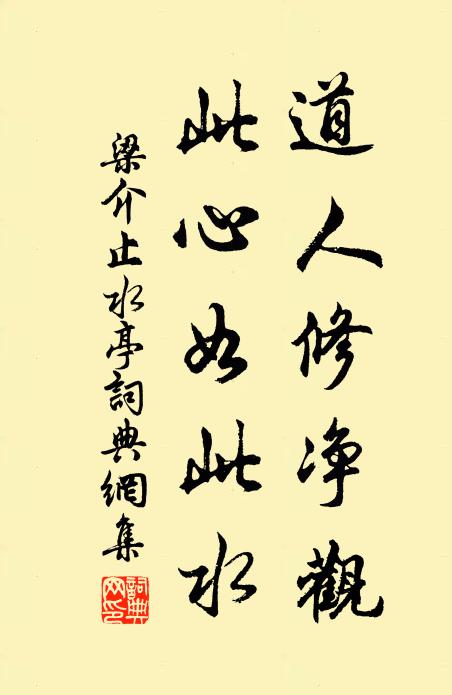 道人修净觀
此心如此水
梁介止水亭詞典網集
詞典网印